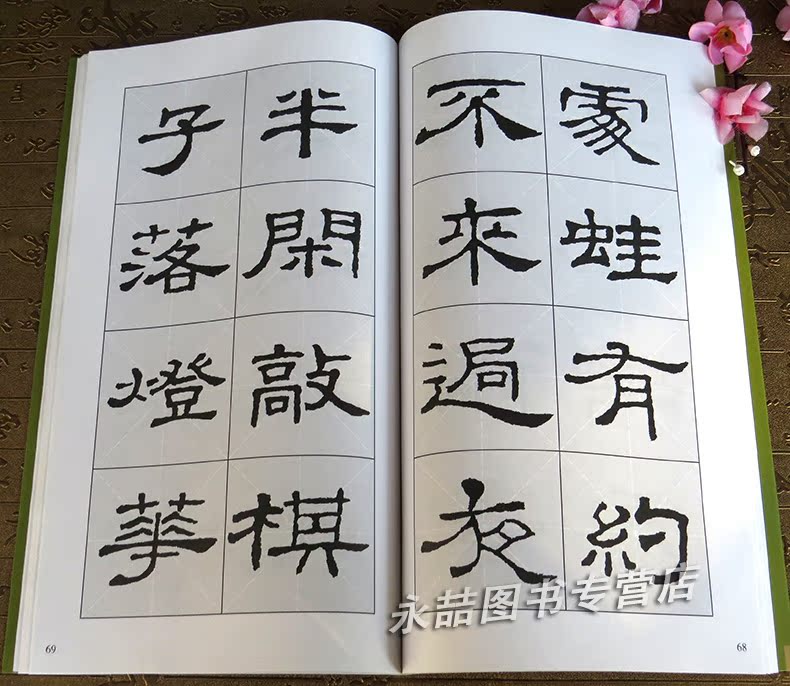 處蛙有約
不來過夜
半閑敲棋
子落燈華
69
68
永喆图书专营店